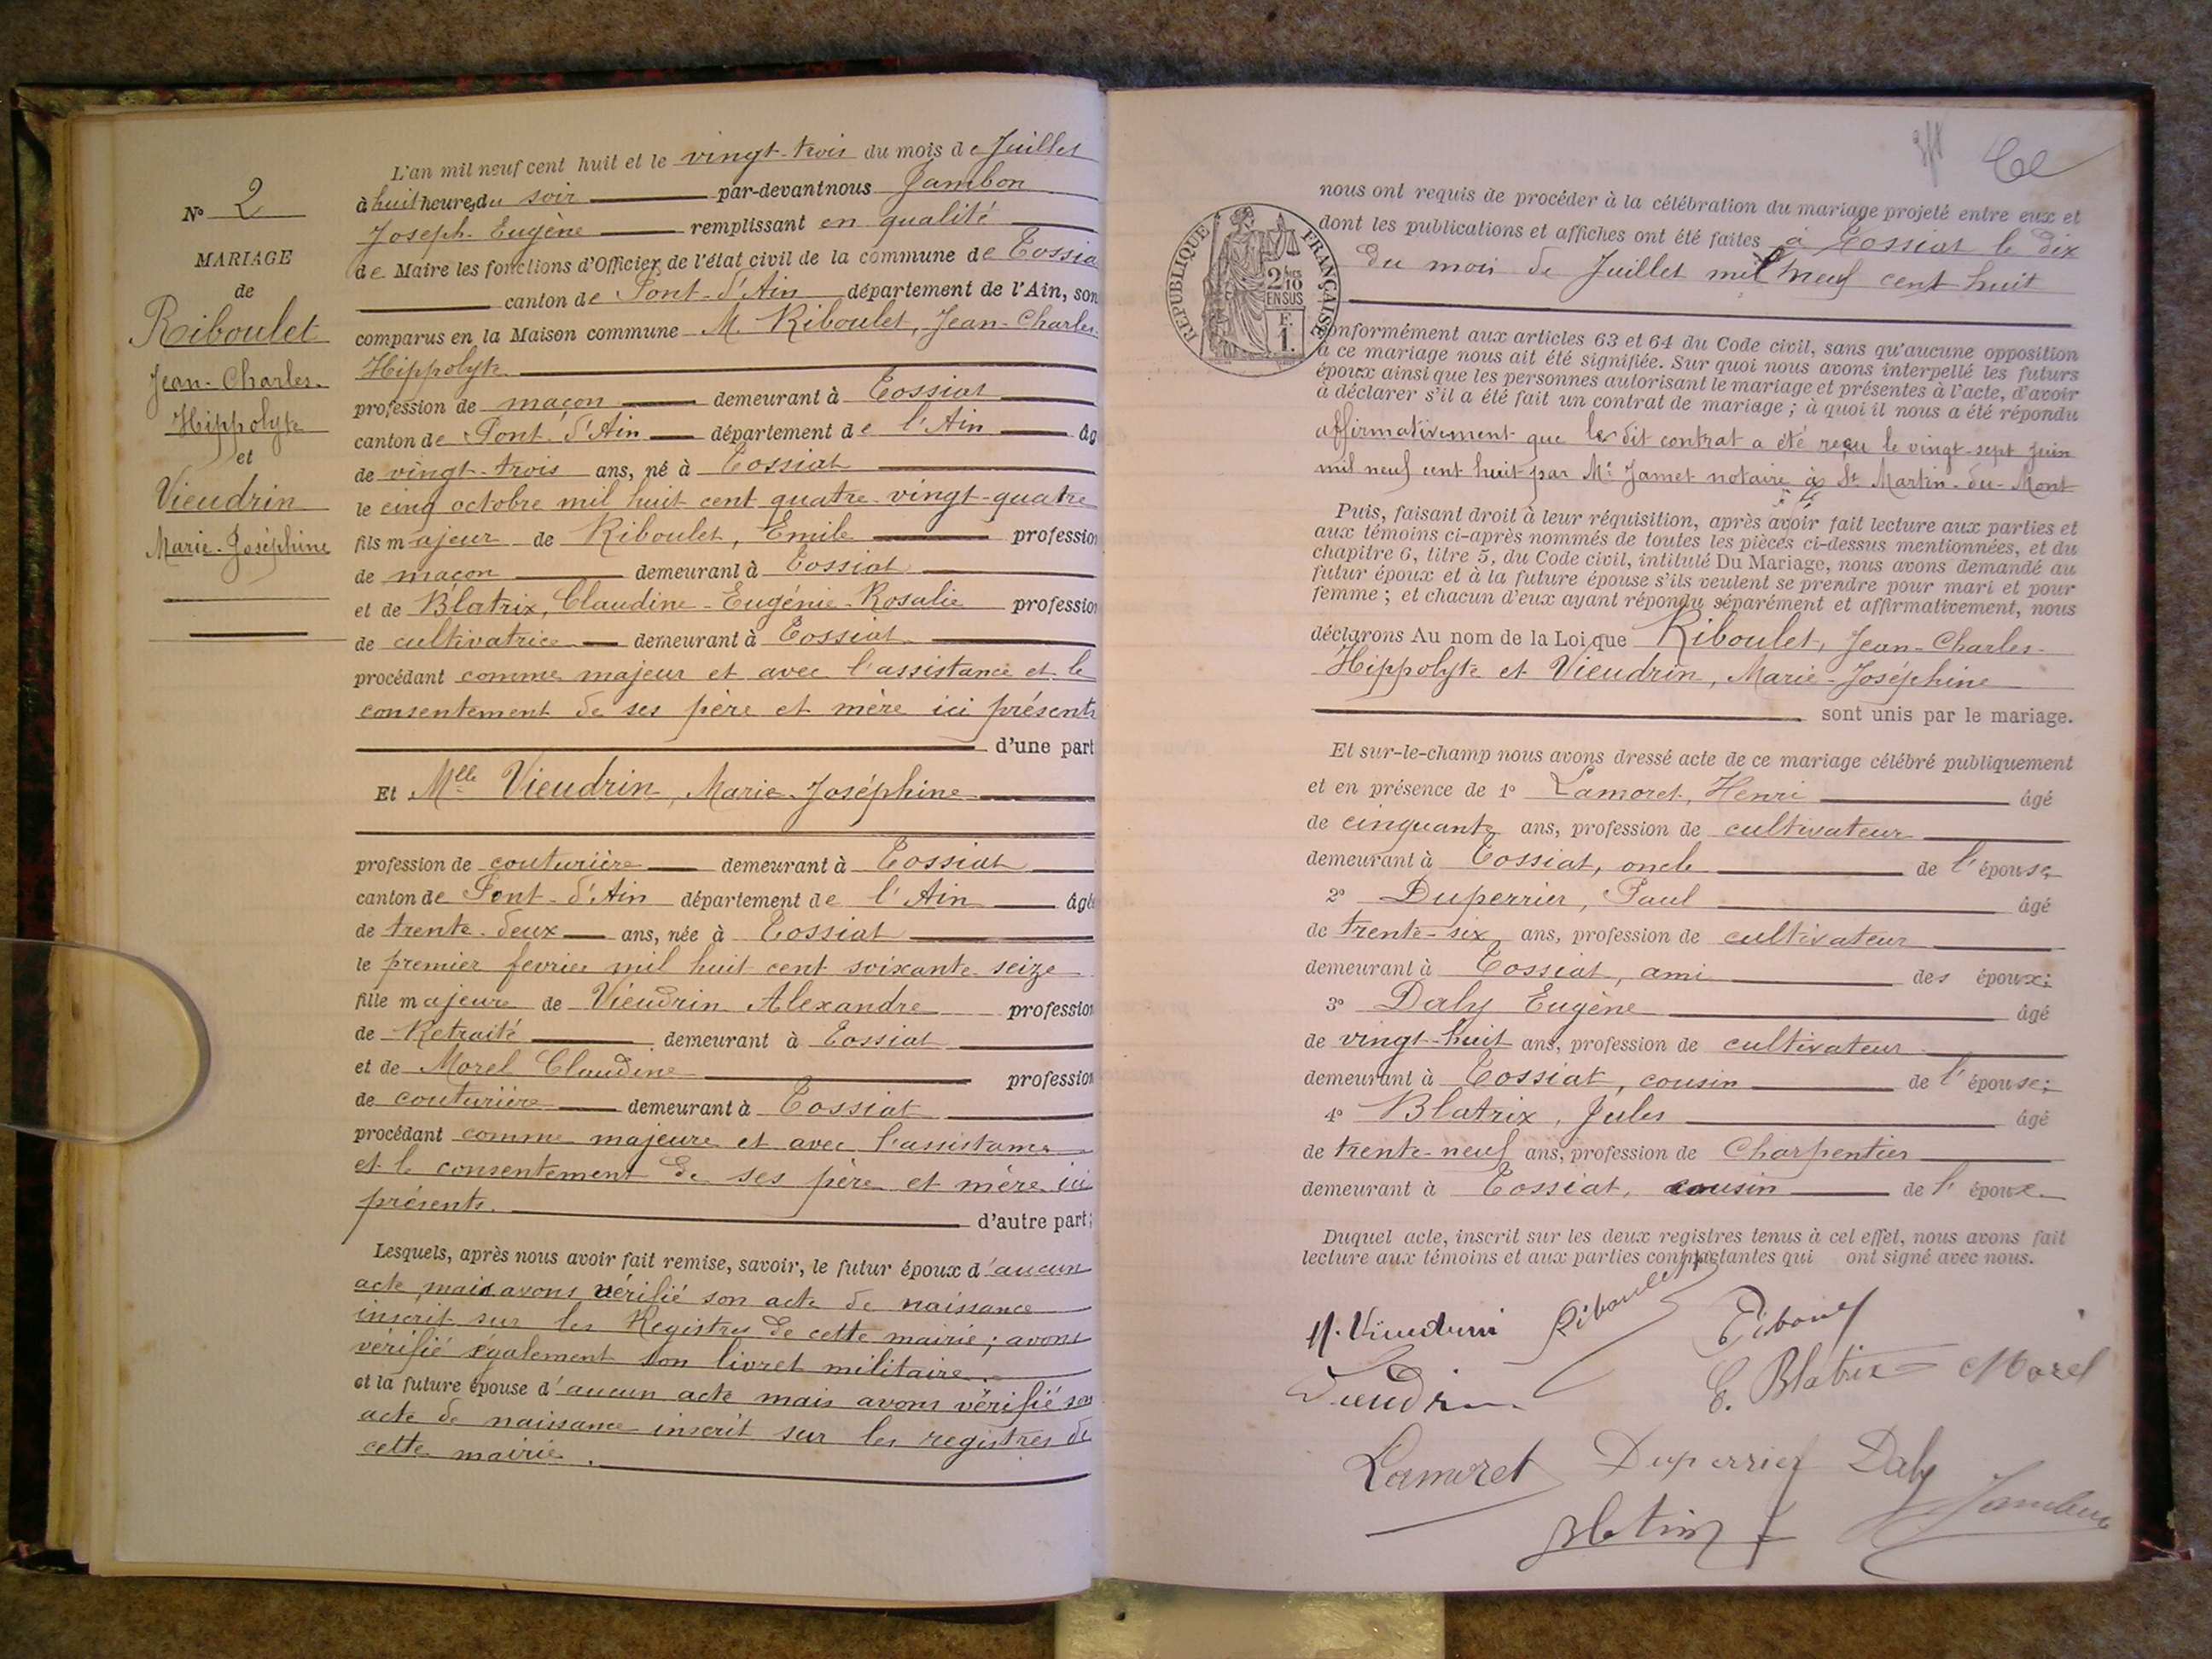 L'an mil neuf cent huit et le vingt-trois du mois de Juillet
à huit heures du soir par-devant nous Jambon
Joseph-Eugène remplissant en qualité
de Maire les fonctions d'Officier de l'état civil de la commune de Tossia
canton de Pont-d'Ain département de l'Ain, son
comparus en la Maison commune M. Riboulet, Jean-Charles-
Hippolyte
profession de maçon demeurant à Tossiat
canton de Pont-d'Ain département de l'Ain âg
de vingt-trois ans, né à Tossiat
le cinq octobre mil huit cent quatre-vingt-quatre
fils majeur de Riboulet, Emile profession
de maçon demeurant à Tossiat
et de Blatrix, Claudine-Eugénie-Rosalie profession
de cultivatrice demeurant à Tossiat
procédant comme majeur et avec l'assistance et le
consentement de ses père et mère ici présents
d'une part
Et Mlle Vieudrin, Marie-Joséphine
profession de couturière demeurant à Tossiat
canton de Pont-d'Ain département de l'Ain âgé
de trente-deux ans, née à Tossiat
le premier fevrier mil huit cent soixante-seize
fille majeure de Vieudrin Alexandre profession
de Retraité demeurant à Tossiat
et de Morel Claudine profession
de couturière demeurant à Tossiat
procédant comme majeure et avec l'assistance
et le consentement de ses père et mère ici
présents.
d'autre part;
Lesquels, après nous avoir fait remise, savoir, le futur époux d'aucun
acte mais avons vérifié son acte de naissance
inscrit sur les Registres de cette mairie; avons
vérifié également son livret militaire.
et la future épouse d'aucun acte mais avons vérifié son
acte de naissance inscrit sur les registres de
cette mairie.
N° 2
MARIAGE
de
Riboulet
Jean-Charles-
Hippolyte
et
Vieudrin
Marie-Joséphine
nous ont requis de procéder à la célébration du mariage projeté entre eux et
dont les publications et affiches ont été faites à Tossiat le dix
du mois de Juillet mil neuf cent huit
RÉPUBLIQUE FRANÇAISE
2/10 EN SUS
F. 1.
conformément aux articles 63 et 64 du Code civil, sans qu'aucune opposition
à ce mariage nous ait été signifiée. Sur quoi nous avons interpellé les futurs
époux ainsi que les personnes autorisant le mariage et présentes à l'acte, d'avoir
à déclarer s'il a été fait un contrat de mariage ; à quoi il nous a été répondu
affirmativement que le dit contrat a été reçu le vingt-sept juin
mil neuf cent huit par Me Jamet notaire à St Martin-du-Mont
Puis, faisant droit à leur réquisition, après avoir fait lecture aux parties et
aux témoins ci-après nommés de toutes les pièces ci-dessus mentionnées, et du
chapitre 6, titre 5, du Code civil, intitulé Du Mariage, nous avons demandé au
futur époux et à la future épouse s'ils veulent se prendre pour mari et pour
femme ; et chacun d'eux ayant répondu séparément et affirmativement, nous
déclarons Au nom de la Loi que Riboulet, Jean-Charles-
Hippolyte et Vieudrin, Marie-Joséphine
sont unis par le mariage.
Et sur-le-champ nous avons dressé acte de ce mariage célébré publiquement
et en présence de 1° Lamoret, Henri âgé
de cinquante ans, profession de cultivateur
demeurant à Tossiat, oncle de l'épouse
2° Duperrier, Paul âgé
de trente-six ans, profession de cultivateur
demeurant à Tossiat, ami des époux;
3° Daly Eugène âgé
de vingt-huit ans, profession de cultivateur
demeurant à Tossiat, cousin de l'épouse;
4° Blatrix, Jules âgé
de trente-neuf ans, profession de Charpentier
demeurant à Tossiat, cousin de l'époux
Duquel acte, inscrit sur les deux registres tenus à cet effet, nous avons fait
lecture aux témoins et aux parties contractantes qui ont signé avec nous.
M. Vieudrin Riboulet
Vieudrin E. Blatrix Morel
Lamoret Duperrier Daly
Blatrix Jambon